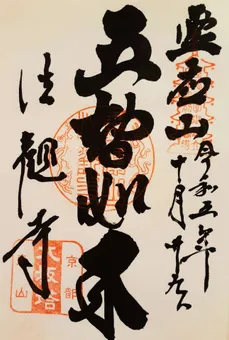 霊應山
令和五年
十月廿
五智如来
法観寺
京都
八坂塔
山